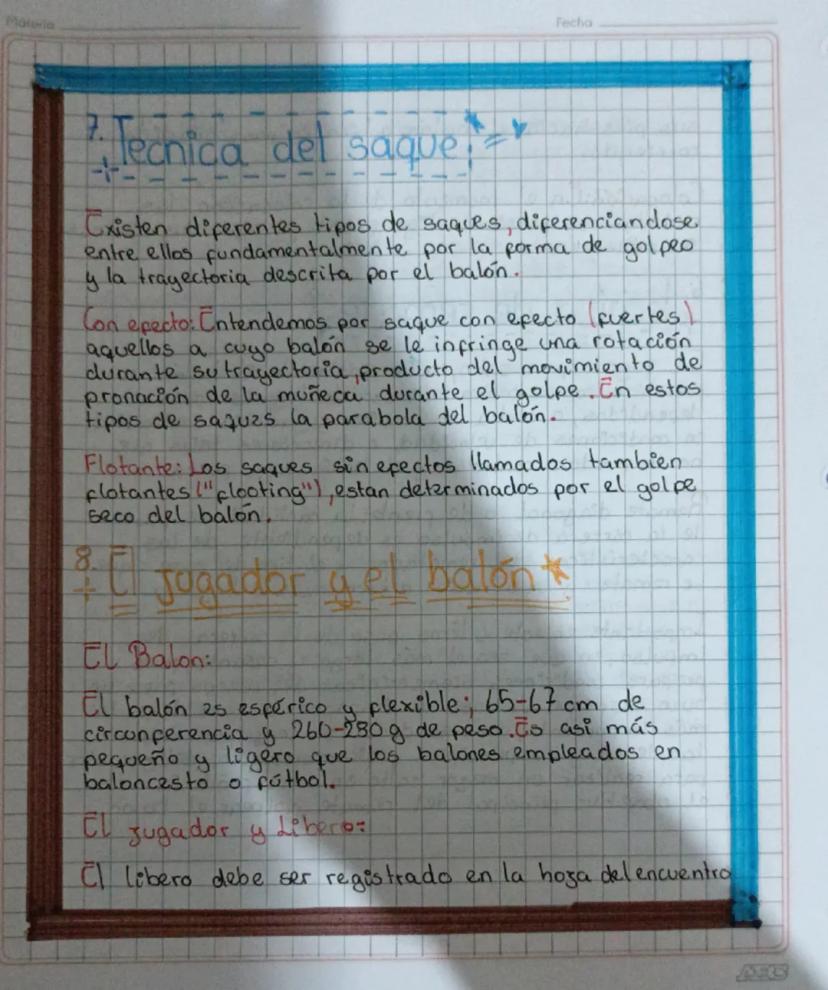 Materia
Fecha
7. Tecnica del saque:
Existen diferentes tipos de saques, diferenciandose
entre ellos fundamentalmente por la forma de golpeo
y la trayectoria descrita por el balón.
Con efecto: Entendemos por saque con efecto (fuertes)
aquellos a cuyo balón se le infringe una rotación
durante su trayectoria, producto del movimiento de
pronación de la muñeca durante el golpe. En estos
tipos de saques la parabola del balón.
Flotante: Los saques sin efectos llamados tambien
flotantes ("floating"), estan determinados por el golpe
seco del balón.
8. El jugador y el balón
El Balon:
El balón es esférico y flexible; 65-67 cm de
circonferencia y 260-280 g de peso. Es asi más
pequeño y ligero que los balones empleados en
baloncesto o fútbol.
El jugador y Libero:
El libero debe ser registrado en la hoja del encuentro